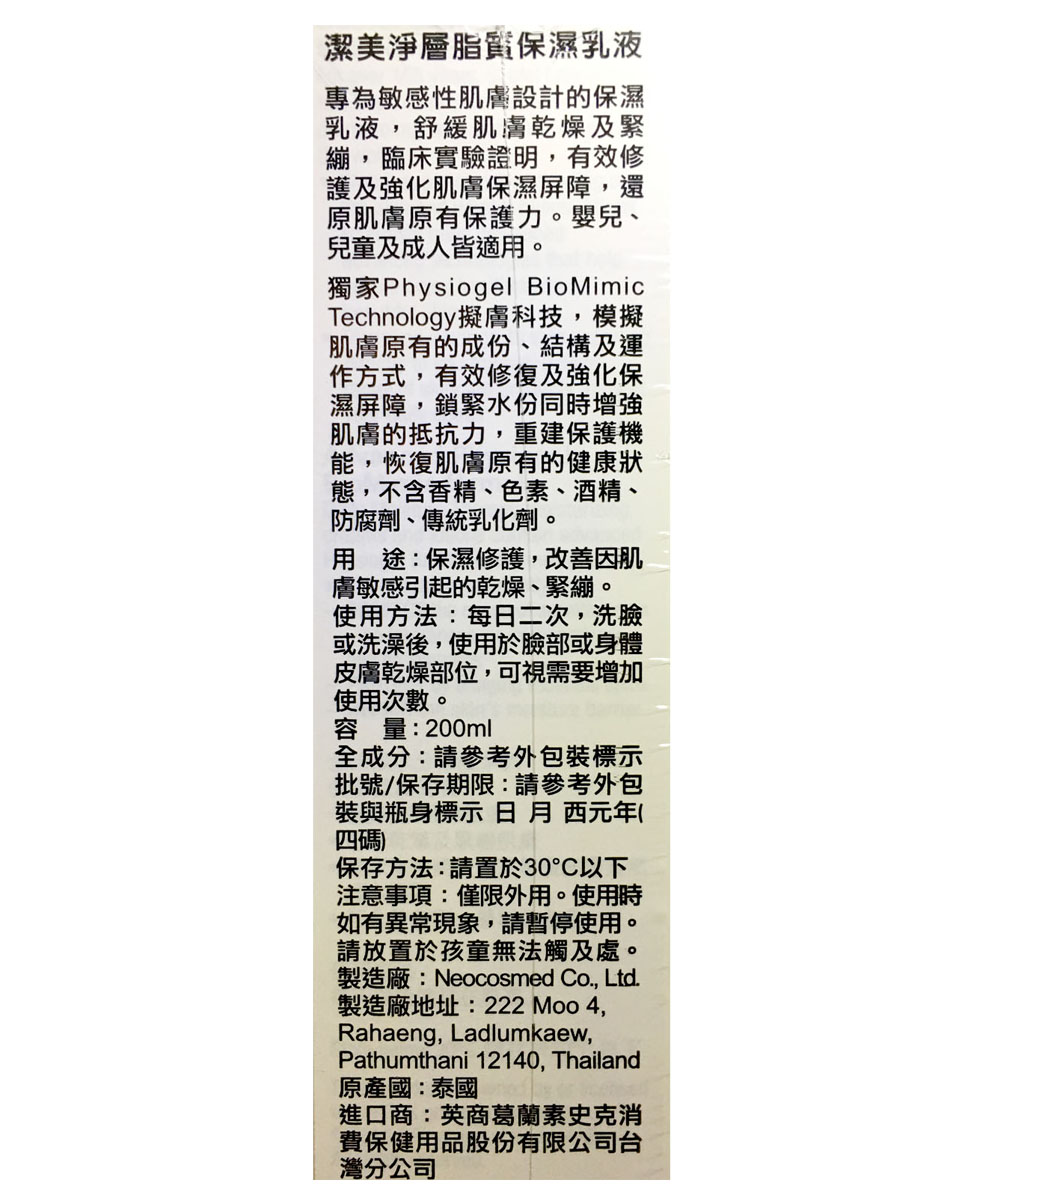 潔美淨層脂質保濕乳液
專為敏感性肌膚設計的保濕
乳液，舒緩肌膚乾燥及緊
繃，臨床實驗證明，有效修
護及強化肌膚保濕屏障，還
原肌膚原有保護力。嬰兒、
兒童及成人皆適用。
獨家Physiogel BioMimic
Technology擬膚科技，模擬
肌膚原有的成份、結構及運
作方式，有效修復及強化保
濕屏障，鎖緊水份同時增強
肌膚的抵抗力，重建保護機
能，恢復肌膚原有的健康狀
態，不含香精、色素、酒精、
防腐劑、傳統乳化劑。
用　途：保濕修護，改善因肌
膚敏感引起的乾燥、緊繃。
使用方法：每日二次，洗臉
或洗澡後，使用於臉部或身體
皮膚乾燥部位，可視需要增加
使用次數。
容　量：200ml
全成分：請參考外包裝標示
批號/保存期限：請參考外包
裝與瓶身標示 日 月 西元年(
四碼)
保存方法：請置於30°C以下
注意事項：僅限外用。使用時
如有異常現象，請暫停使用。
請放置於孩童無法觸及處。
製造廠：Neocosmed Co., Ltd.
製造廠地址：222 Moo 4,
Rahaeng, Ladlumkaew,
Pathumthani 12140, Thailand
原產國：泰國
進口商：英商葛蘭素史克消
費保健用品股份有限公司台
灣分公司